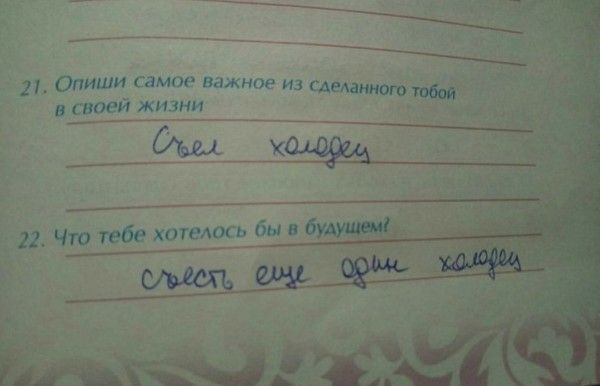 21. Опиши самое важное из сделанного тобой
в своей жизни
Съел холодец
22. Что тебе хотелось бы в будущем?
съесть еще один холодец